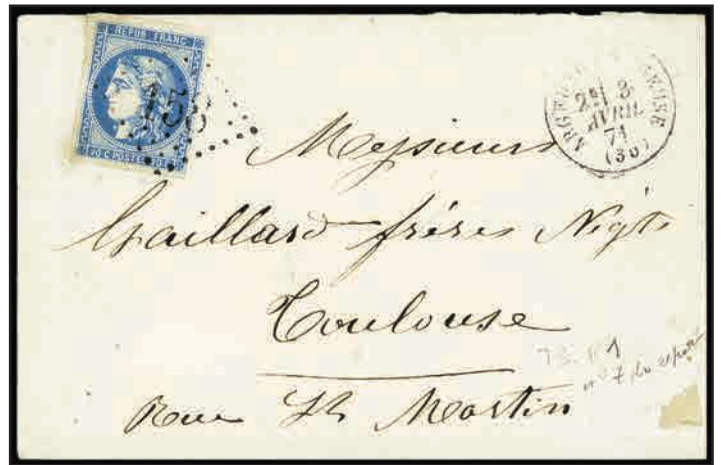 REPUB. FRANC
158
20 C POSTES 20 C
2E 3
AVRIL
71
(36)
Messieurs
Gaillard frères Négts
Toulouse
Rue St Martin